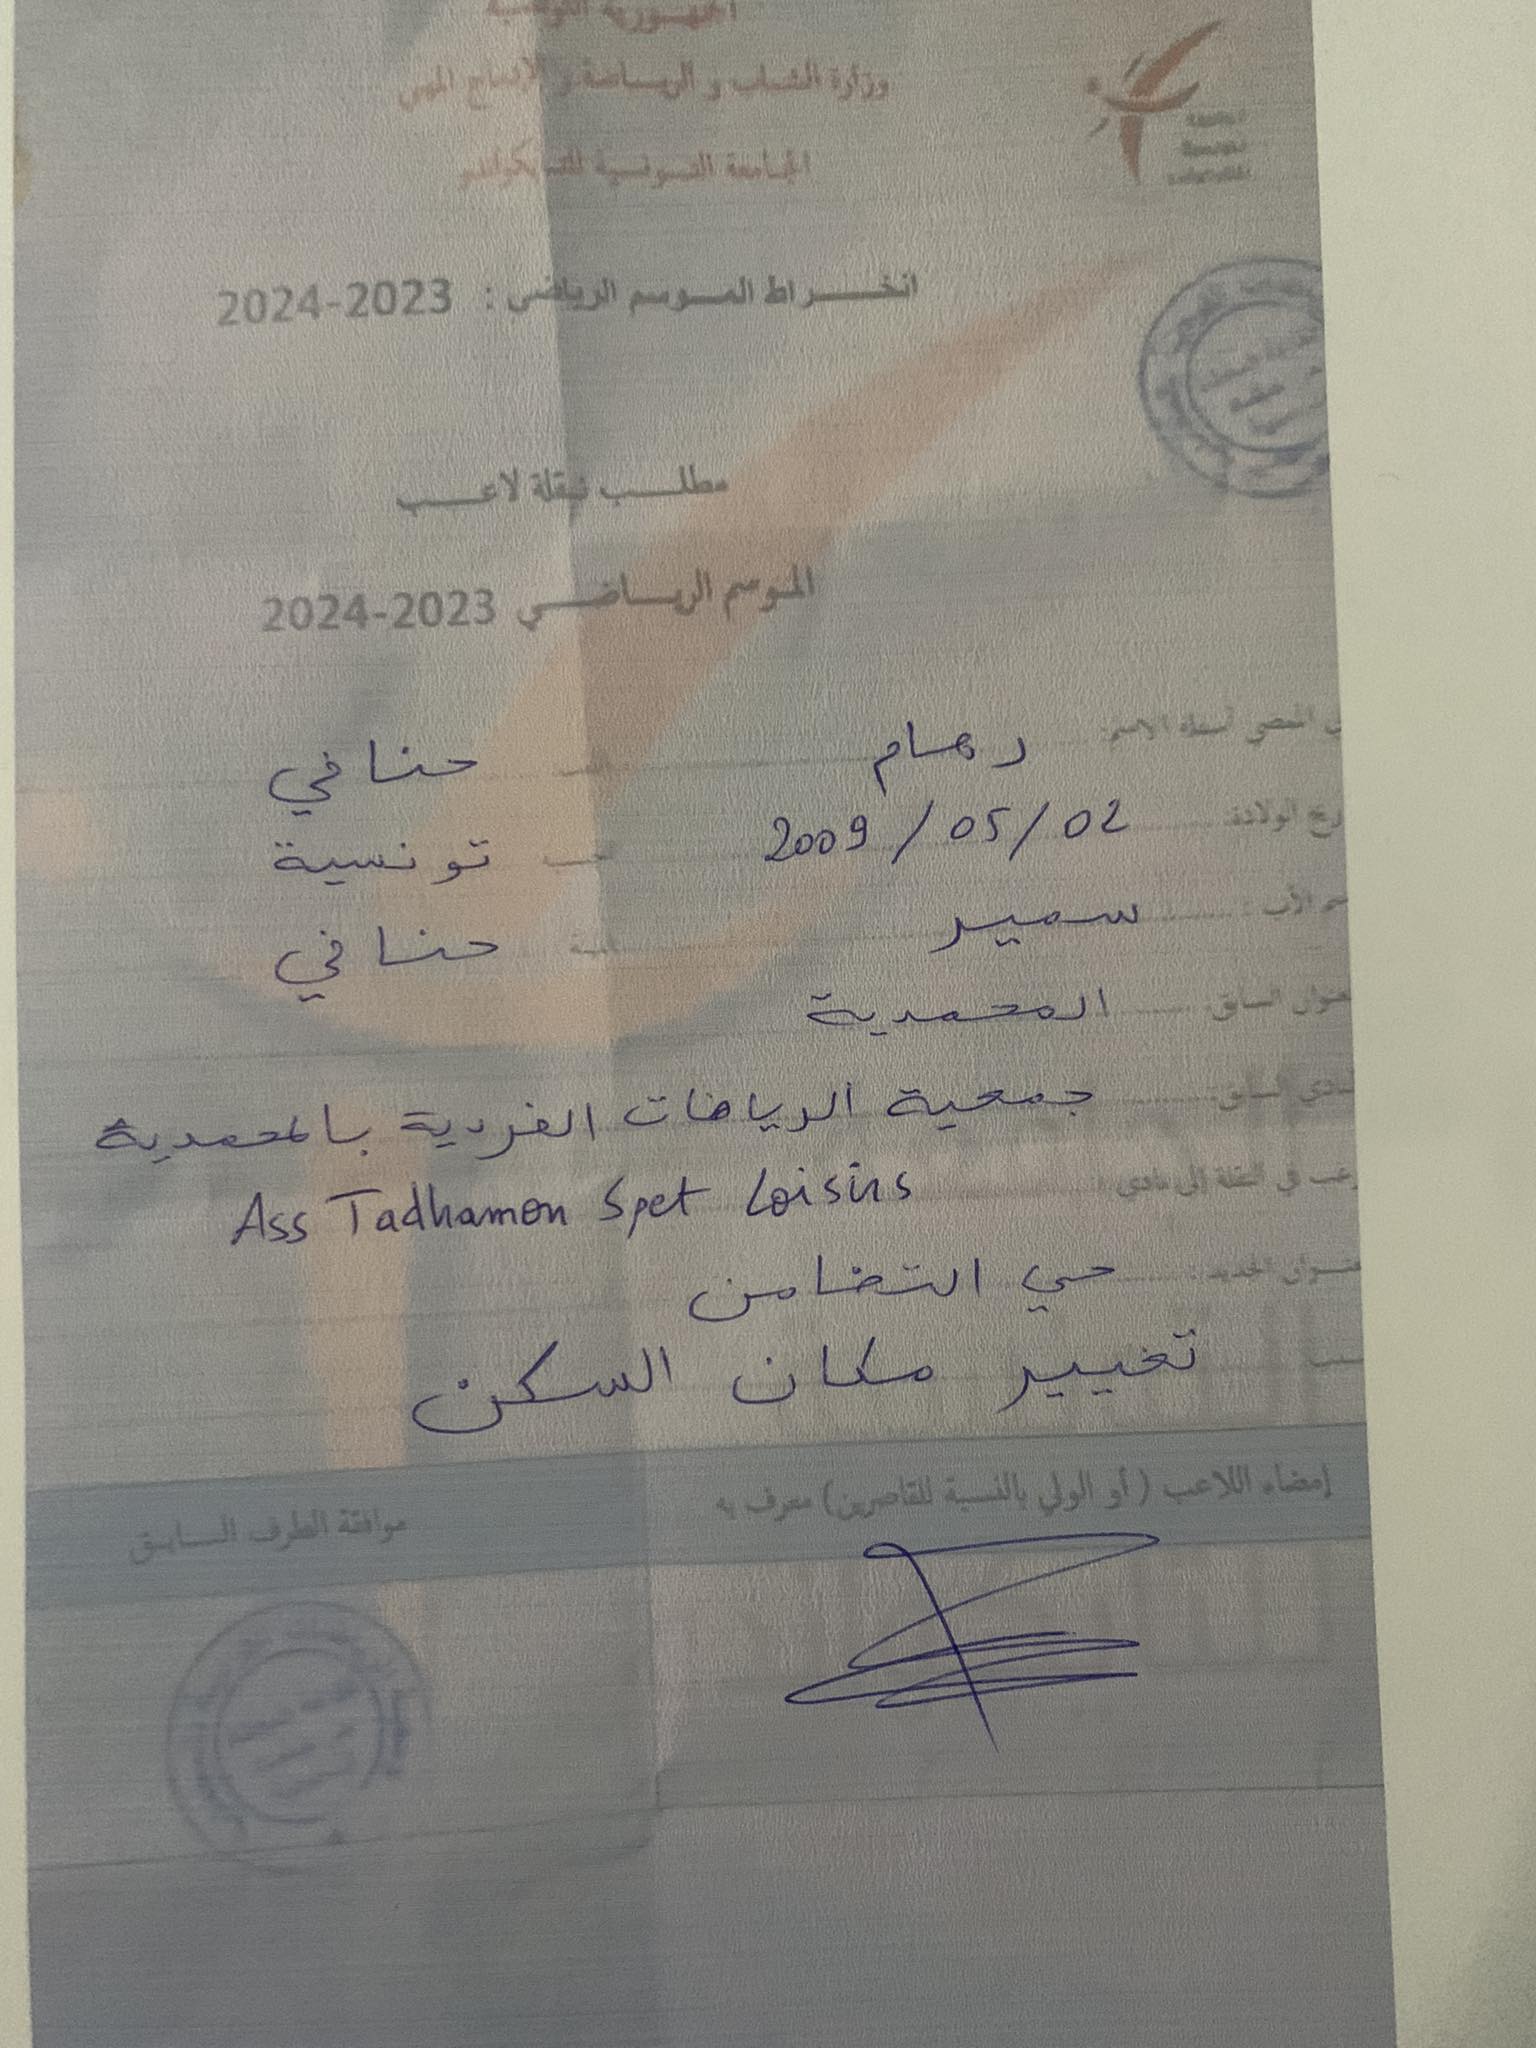 الجمهورية التونسية
وزارة الشباب و الرياضة و الإدماج المهني
الجامعة التونسية للتايكواندو
انخراط الموسم الرياضي : 2023-2024
مطلب نقلة لاعب
الموسم الرياضي 2023-2024
الممضي أسفله الاسم: رهام اللقب حنافي
الولادة: 02 / 05 / 2009 تونسية
الأب : سمير حنافي
السابق: المحمدية
السابق: جمعية الرياضات الفردية بالمحمدية
في النقلة إلى نادي : Ass Tadhamon Spet Loisirs
الجديد : حي التضامن
تغيير مكان السكن
إمضاء اللاعب ( أو الولي بالنسبة للقاصرين) معرف به
موافقة الطرف السابق